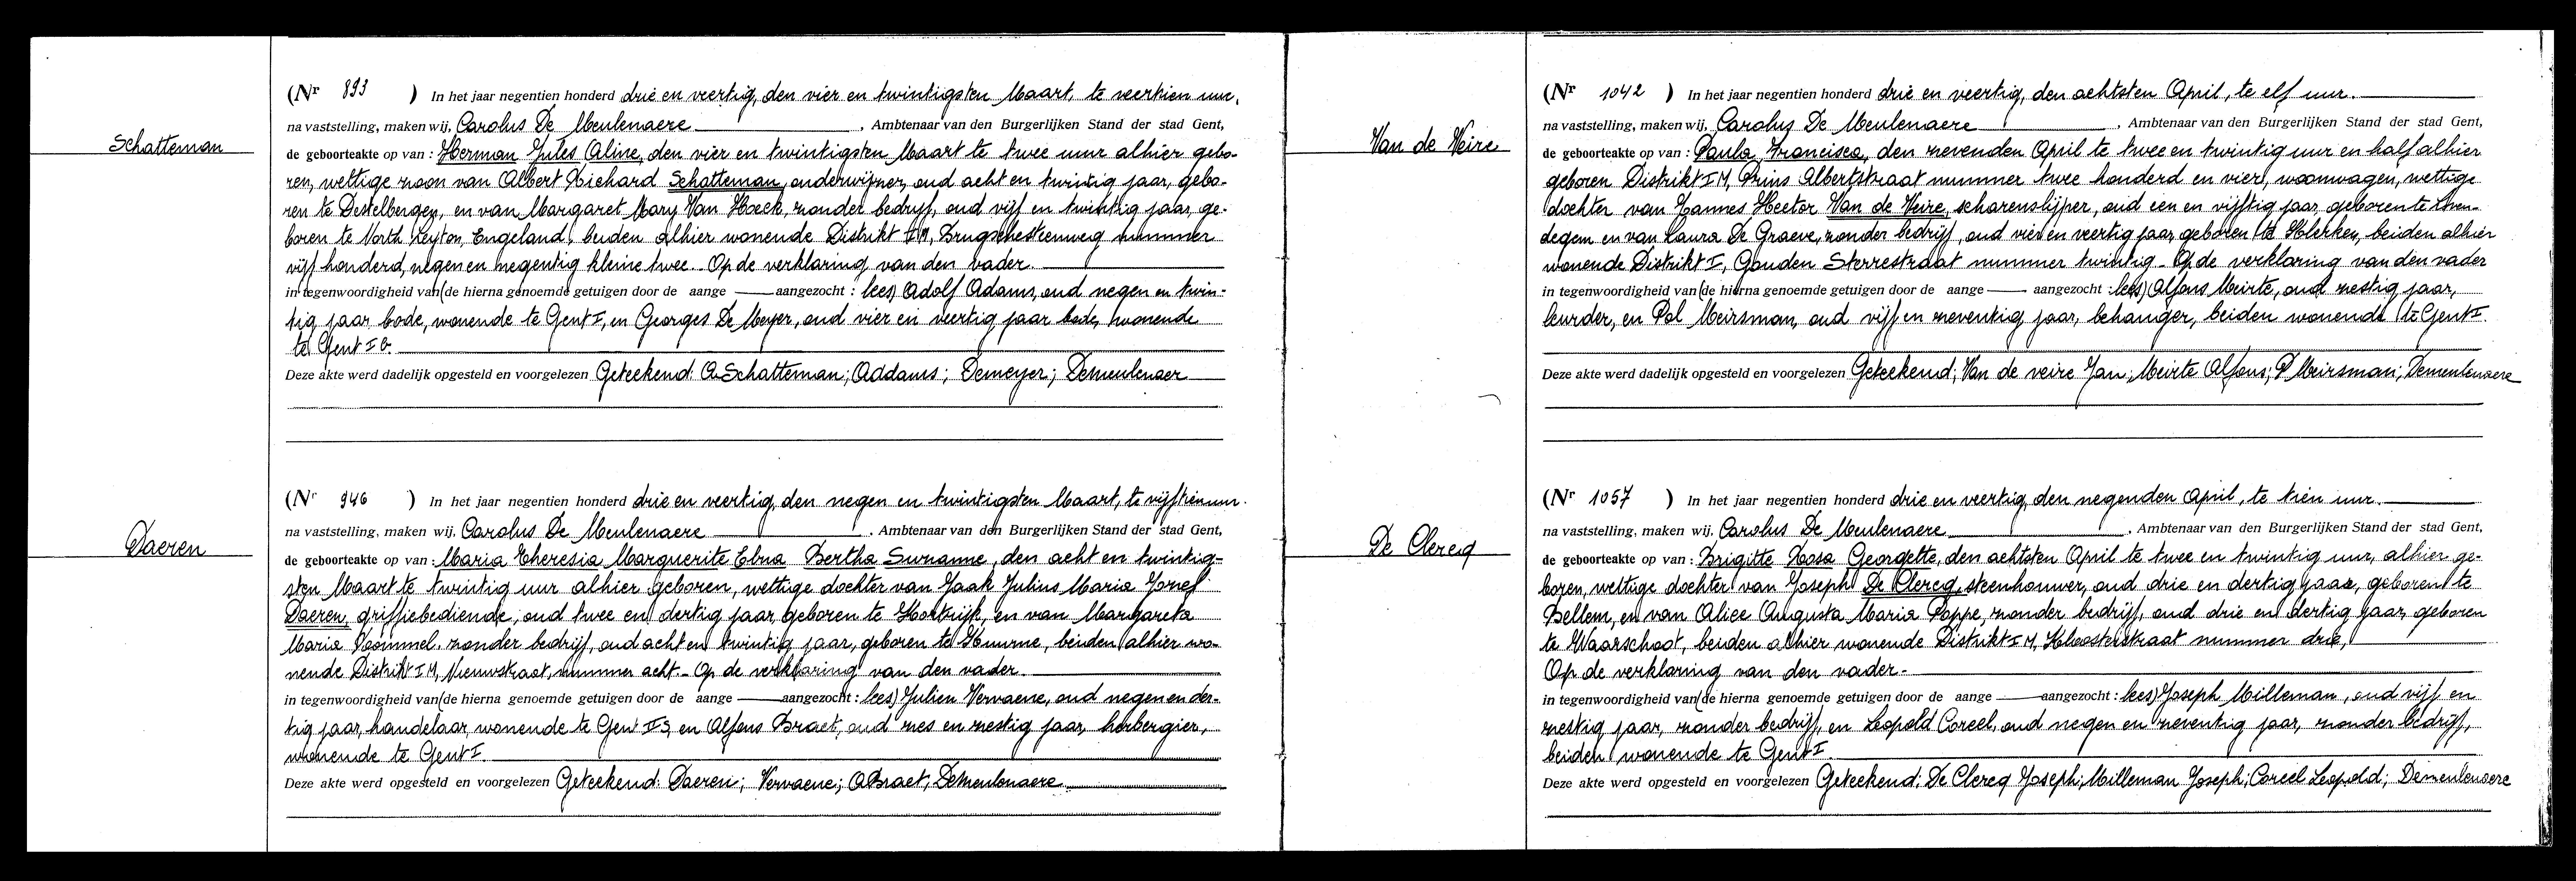 Schatteman
(Nr 893 ) In het jaar negentien honderd drie en veertig, den vier en twintigsten Maart, te veertien uur,
na vaststelling, maken wij, Carolus De Meulenaere , Ambtenaar van den Burgerlijken Stand der stad Gent,
de geboorteakte op van : Herman Jules Aline, den vier en twintigsten Maart te twee uur alhier gebo-
ren, wettige zoon van Albert Richard Schatteman, onderwijzer, oud acht en twintig jaar, gebo-
ren te Destelbergen, en van Margaret Mary Van Hoeck, zonder bedrijf, oud vijf en twintig jaar, ge-
boren te North Leyton, Engeland, beiden alhier wonende Distrikt I M, Brugschesteenweg nummer
vijf honderd negen en negentig kleine twee. Op de verklaring van den vader.
in tegenwoordigheid van (de hierna genoemde getuigen door de aange — aangezocht : lees) Adolf Adams, oud negen en twin-
tig jaar bode, wonende te Gent I, en Georges De Meyer, oud vier en veertig jaar bode, wonende
te Gent I B.
Deze akte werd dadelijk opgesteld en voorgelezen Geteekend: A Schatteman; Addams; Demeyer; Demeulenaer
Daeren
(Nr 946 ) In het jaar negentien honderd drie en veertig, den negen en twintigsten Maart, te vijftien uur.
na vaststelling, maken wij, Carolus De Meulenaere , Ambtenaar van den Burgerlijken Stand der stad Gent,
de geboorteakte op van : Maria Theresia Marguerite Elna Bertha Suzanne, den acht en twintig-
sten Maart te twintig uur alhier geboren, wettige dochter van Jaak Julius Maria Jozef
Daeren, griffiebediende, oud twee en dertig jaar, geboren te Kortrijk, en van Margareta
Maria Rommel, zonder bedrijf, oud acht en twintig jaar, geboren te Kuurne, beiden alhier wo-
nende Distrikt I M, Nieuwstraat, nummer acht. - Op de verklaring van den vader.
in tegenwoordigheid van (de hierna genoemde getuigen door de aange — aangezocht : lees) Julien Vervaene, oud negen en der-
tig jaar, handelaar, wonende te Gent II S, en Alfons Braet, oud zes en zestig jaar, herbergier,
wonende te Gent I.
Deze akte werd opgesteld en voorgelezen Geteekend: Daeren; Vervaene; A Braet; Demeulenaere
Van de Veire
(Nr 1042 ) In het jaar negentien honderd drie en veertig, den achtsten April, te elf uur.
na vaststelling, maken wij, Carolus De Meulenaere , Ambtenaar van den Burgerlijken Stand der stad Gent,
de geboorteakte op van : Paula Francisca, den zevenden April te twee en twintig uur en half alhier
geboren Distrikt I M, Prins Albertstraat nummer twee honderd en vier, woonwagen, wettige
dochter van Joannes Hector Van de Veire, scharenslijper, oud een en vijftig jaar, geboren te
degem en van Laura De Graeve, zonder bedrijf, oud vier en veertig jaar, geboren te Klerken, beiden alhier
wonende Distrikt I, Gouden Sterrestraat nummer twintig - Op de verklaring van den vader
in tegenwoordigheid van (de hierna genoemde getuigen door de aange — aangezocht : lees) Alfons Meirte, oud zestig jaar,
leurder, en Pol Meirsman, oud vijf en zeventig jaar, behanger, beiden wonende te Gent I.
Deze akte werd dadelijk opgesteld en voorgelezen Geteekend; Van de veire Jan; Meirte Alfons; P Meirsman; Demeulenaere
De Clercq
(Nr 1057 ) In het jaar negentien honderd drie en veertig, den negenden April, te tien uur.
na vaststelling, maken wij, Carolus De Meulenaere , Ambtenaar van den Burgerlijken Stand der stad Gent,
de geboorteakte op van : Brigitte Rosa Georgette, den achtsten April te twee en twintig uur, alhier ge-
boren, wettige dochter van Joseph De Clercq, steenhouwer, oud drie en dertig jaar, geboren te
Bellem, en van Alice Augusta Maria Poppe, zonder bedrijf, oud drie en dertig jaar, geboren
te Waarschoot, beiden alhier wonende Distrikt I M, Kloosterstraat nummer drie,
Op de verklaring van den vader -
in tegenwoordigheid van (de hierna genoemde getuigen door de aange — aangezocht : lees) Joseph Milleman, oud vijf en
zestig jaar, zonder bedrijf, en Leopold Coreel, oud negen en zeventig jaar, zonder bedrijf,
beiden wonende te Gent I.
Deze akte werd opgesteld en voorgelezen Geteekend: De Clercq Joseph; Milleman Joseph; Coreel Leopold; Demeulenaere